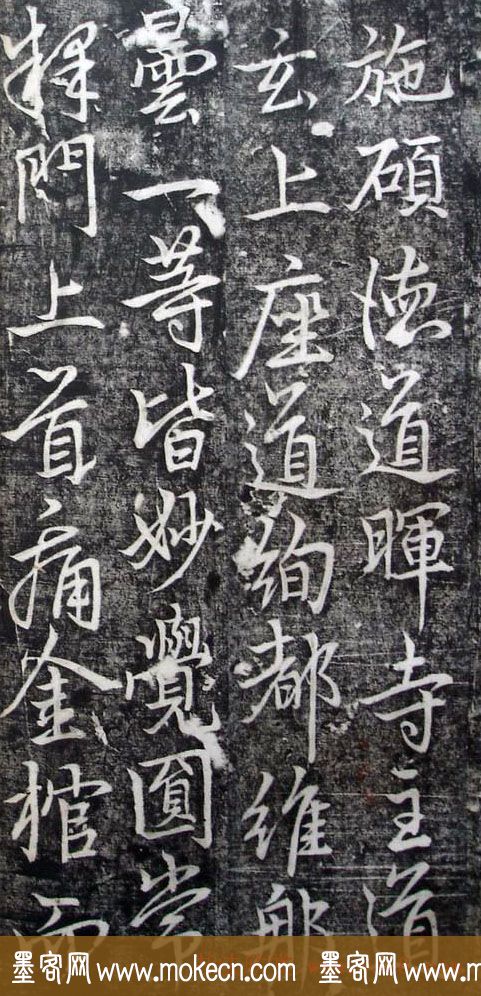 施碩德道暉寺主道
玄上座道絢都維那
曇一等皆妙覺圓常
釋門上首痛金棺而
墨客网 www.mokecn.com 墨客网 www.mokecn.com